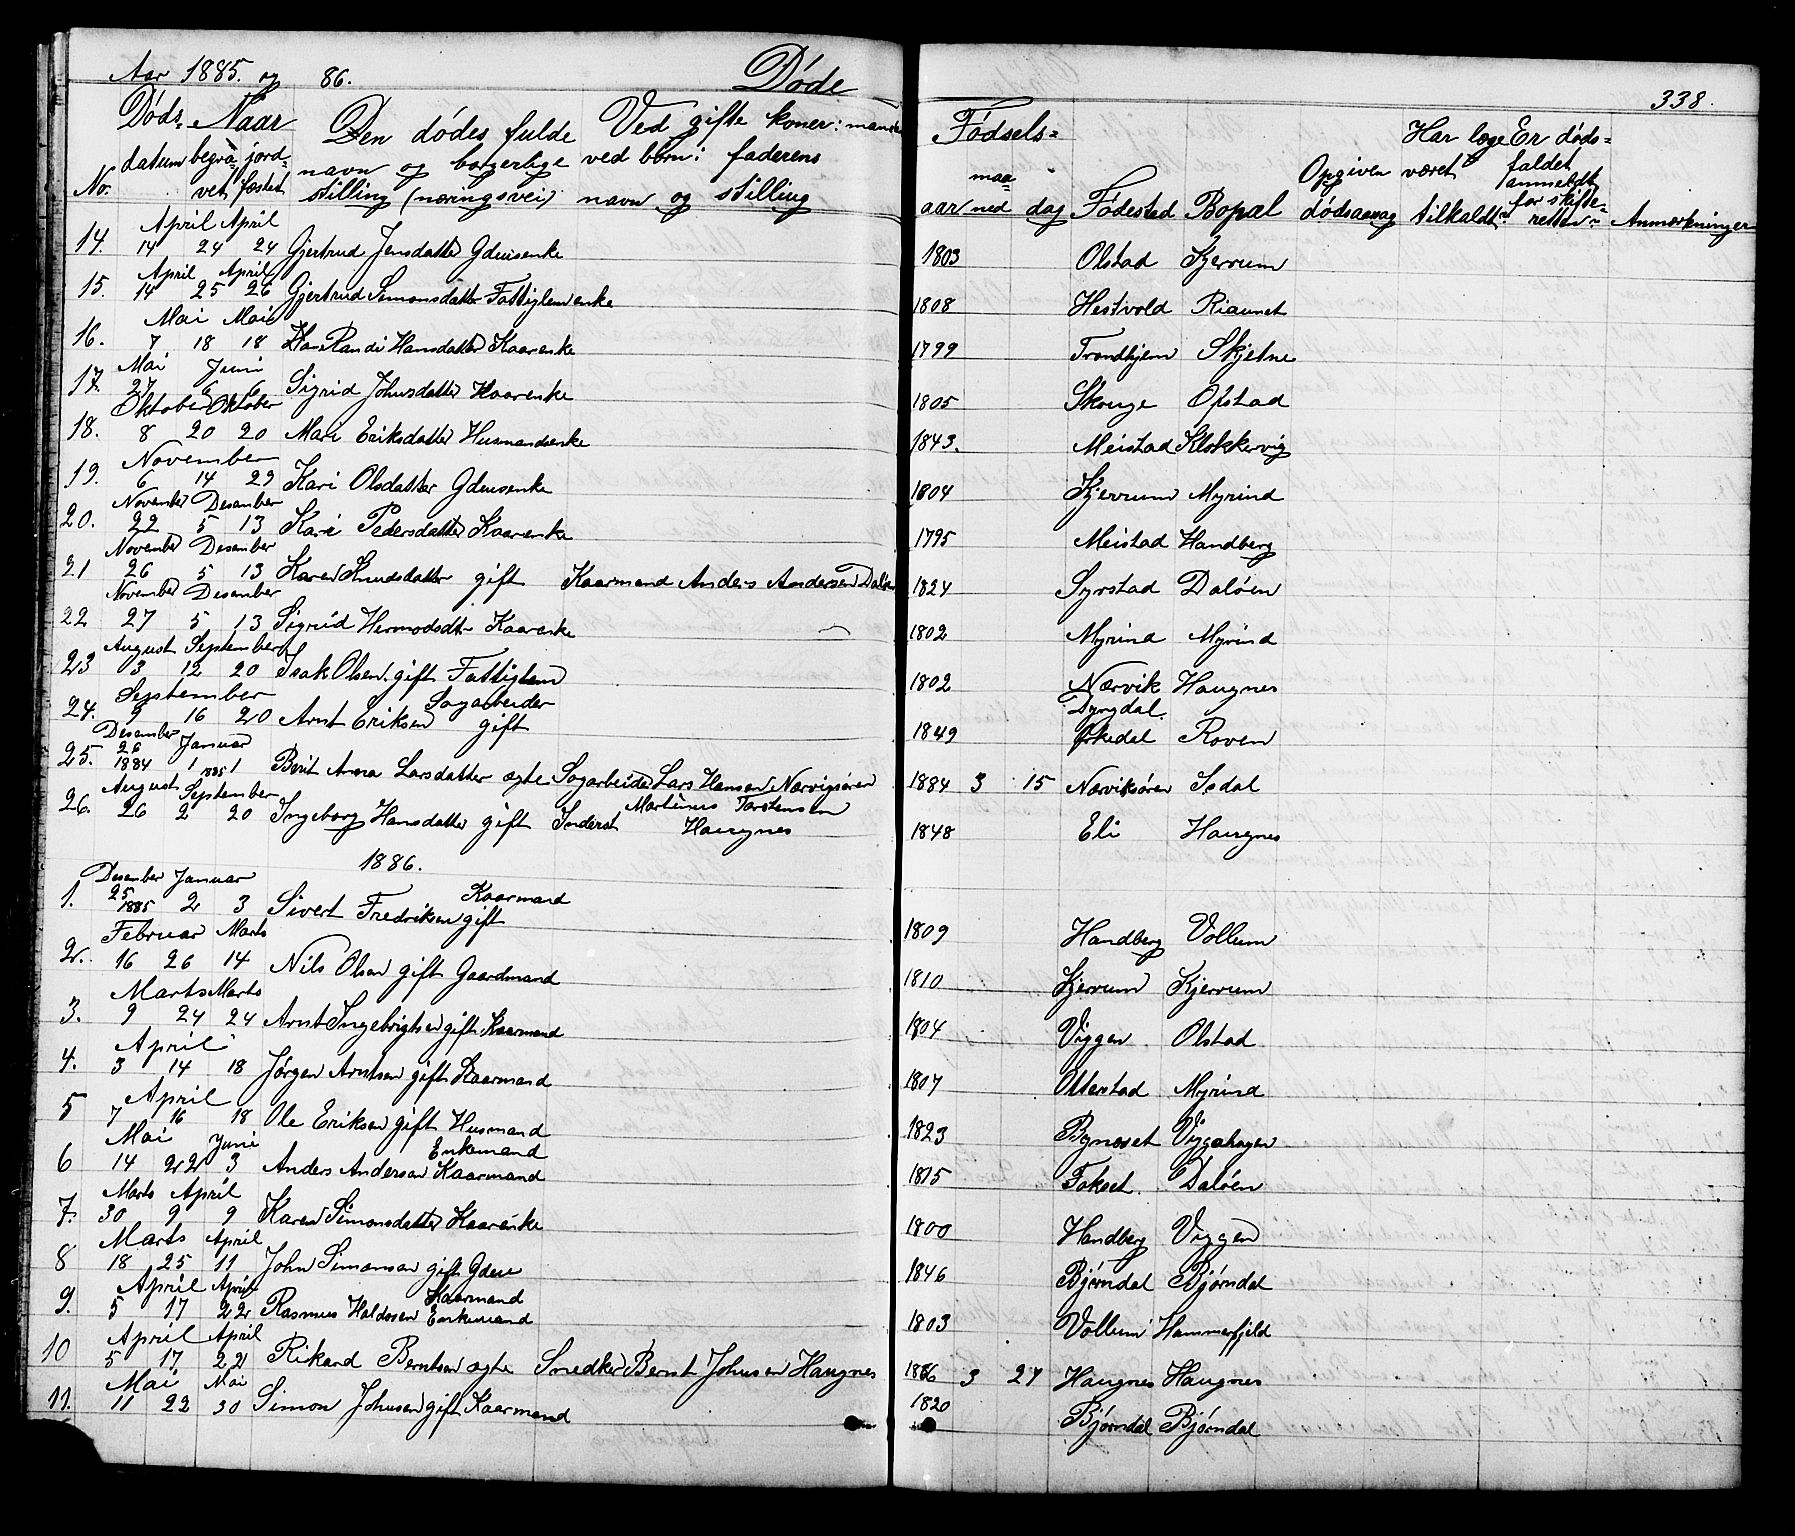 Aar 1885. og 86. Døde 338.
Døds- Naar Den dødes fulde Ved gifte koner: mands Fødsels- Har læge Er døds-
datum begra- jord- navn og borgerlige ved børn: faderens maa- Opgiven været faldet anmeldt
No. vet fæstet stilling (næringsvei) navn og stilling aar ned dag Fødested Bopæl dødsaarsag tilkaldt? for skifte- retten? Anmærkninger
April April
14. 14 24 24 Gjertrud Jensdatter Gdeusenke 1803 Olstad Kjerrum
April April
15. 14 25 26 Gjertrud Simonsdatter Fattiglem enke 1808 Hestvold Riaunet
Mai Mai
16. 7 18 18 Randi Hansdatter Kaarenke 1799 Trondhjem Skjetne
Mai Juni
17. 27 6 6 Sigrid Johnsdatter Kaarenke 1805 Skauge Opstad
Oktober Oktober
18. 8 20 20 Mari Eriksdatter Husmandsenke 1843. Meistad Klokkervig
November
19. 6 14 29 Kari Olsdatter Gdeusenke 1804 Kjerrum Myrind
November Desember
20. 22 5 13 Kari Pedersdatter Kaarenke 1795 Meistad Handberg
November Desember
21 26 5 13 Karen Knudsdatter gift Kaarmand Anders Andersen Daløen 1824 Syrstad Daløen
November Desember
22 27 5 13 Sigrid Hermodsdtr Kaarenke 1802 Myrind Myrind
August September
23 3 12 20 Isak Olsen gift Fattiglem 1802 Nærvik Haugnes
September Sagarbeider Dyrgdal
24. 9 16 20 Arnt Eriksen gift 1849 Ørkedal Roven
Desember Januar
25. 26 1884 1 1885 1 Berit Anna Larsdatter ægte Sagarbeider Lars Hansen Nærvigsøren 1884 3 15 Nærviksøren Isdal
August September
26. 26 2 20 Ingeborg Hansdatter gift Inderst Martinus Torstensen Haugnes 1848 Eli Haugnes
1886.
Desember Januar
1. 25 1885 2 3 Sivert Fredriksen gift Kaarmand 1809 Handberg Vollum
Februar Marts
2. 16 26 14 Nils Olsen gift Gaardmand 1810 Kjerrum Kjerrum
Marts Marts
3. 9 24 24 Arnt Ingebrigtsen gift Kaarmand 1804 Viggen Olstad
April
4. 3 14 18 Jørgen Arntsen gift Kaarmand 1807 Otterstad Myrind
April
5 7 16 18 Ole Eriksen gift Husmand 1823 Bynæset Viggahagen
Mai Juni Enkemand
6 14 22 3 Anders Andersen Kaarmand 1815 Fokset Daløen
Marts April
7. 30 9 9 Karen Simonsdatter Kaarenke 1800 Handberg Viggen
Marts April
8 18 25 11 John Simonsen gift Gdeie 1846 Bjørndal Bjørndal
April April Kaarmand
9. 5 17 22 Rasmus Haldosen Enkemand 1803 Vollum Hammerfjeld
April April
10 5 17 22 Rikard Berntsen ægte Snedker Bernt Johnsen Haugnes 1886 3 27 Haugnes Haugnes
Mai Mai
11. 11 22 30 Simon Johnsen gift Kaarmand 1820 Bjørndal Bjørndal